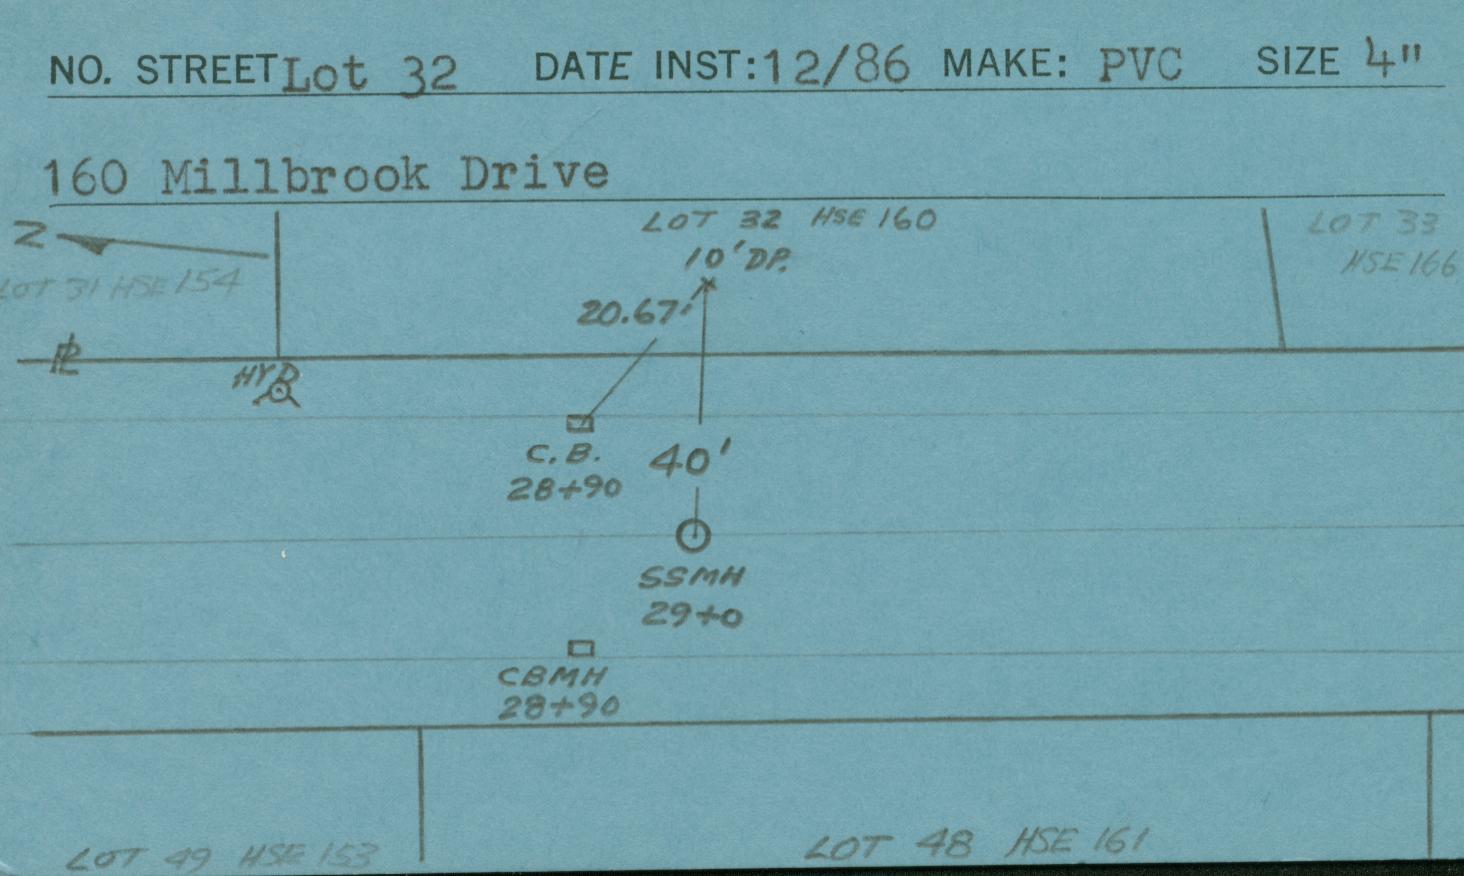 NO. STREET Lot 32 DATE INST: 12/86 MAKE: PVC SIZE 4"
160 Millbrook Drive
LOT 32 HSE 160
LOT 33
HSE 166
N
10' DP.
LOT 31 HSE 154
20.67'
PL
HYD
C.B.
28+90
40'
SSMH
29+0
CBMH
28+90
LOT 49 HSE 153
LOT 48 HSE 161